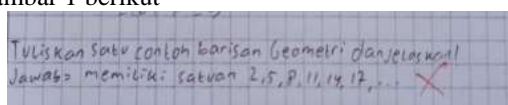 ambar 1 berikut
Tuliskan satu contoh barisan Geometri dan jelaskan!
Jawab= memiliki satuan 2,5,8,11,14,17,...